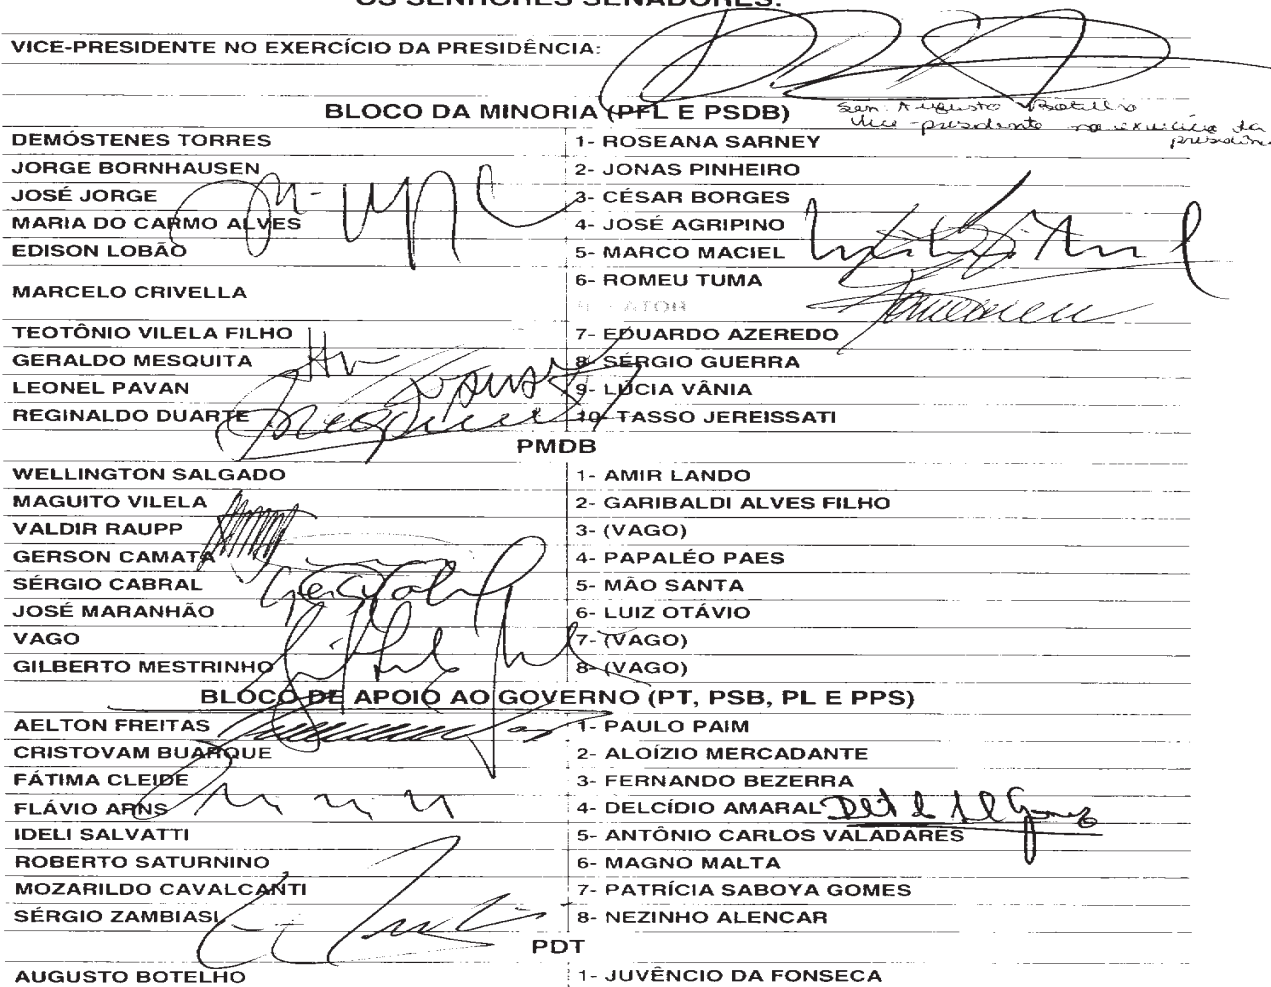 OS SENHORES SENADORES:
VICE-PRESIDENTE NO EXERCÍCIO DA PRESIDÊNCIA:
BLOCO DA MINORIA (PFL E PSDB)
Sen. Augusto Botelho
Vice-presidente no exercício da
presidência
DEMÓSTENES TORRES 1- ROSEANA SARNEY
JORGE BORNHAUSEN 2- JONAS PINHEIRO
JOSÉ JORGE 3- CÉSAR BORGES
MARIA DO CARMO ALVES 4- JOSÉ AGRIPINO
EDISON LOBÃO 5- MARCO MACIEL
MARCELO CRIVELLA 6- ROMEU TUMA
TEOTÔNIO VILELA FILHO 7- EDUARDO AZEREDO
GERALDO MESQUITA 8- SÉRGIO GUERRA
LEONEL PAVAN 9- LÚCIA VÂNIA
REGINALDO DUARTE 10- TASSO JEREISSATI
PMDB
WELLINGTON SALGADO 1- AMIR LANDO
MAGUITO VILELA 2- GARIBALDI ALVES FILHO
VALDIR RAUPP 3- (VAGO)
GERSON CAMATA 4- PAPALÉO PAES
SÉRGIO CABRAL 5- MÃO SANTA
JOSÉ MARANHÃO 6- LUIZ OTÁVIO
VAGO 7- (VAGO)
GILBERTO MESTRINHO 8- (VAGO)
BLOCO DE APOIO AO GOVERNO (PT, PSB, PL E PPS)
AELTON FREITAS 1- PAULO PAIM
CRISTOVAM BUARQUE 2- ALOÍZIO MERCADANTE
FÁTIMA CLEIDE 3- FERNANDO BEZERRA
FLÁVIO ARNS 4- DELCÍDIO AMARAL
IDELI SALVATTI 5- ANTÔNIO CARLOS VALADARES
ROBERTO SATURNINO 6- MAGNO MALTA
MOZARILDO CAVALCANTI 7- PATRÍCIA SABOYA GOMES
SÉRGIO ZAMBIASI 8- NEZINHO ALENCAR
PDT
AUGUSTO BOTELHO 1- JUVÊNCIO DA FONSECA